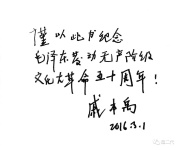 谨以此书纪念
毛泽东发动无产阶级
文化大革命五十周年！
戚本禹
2016.3.1